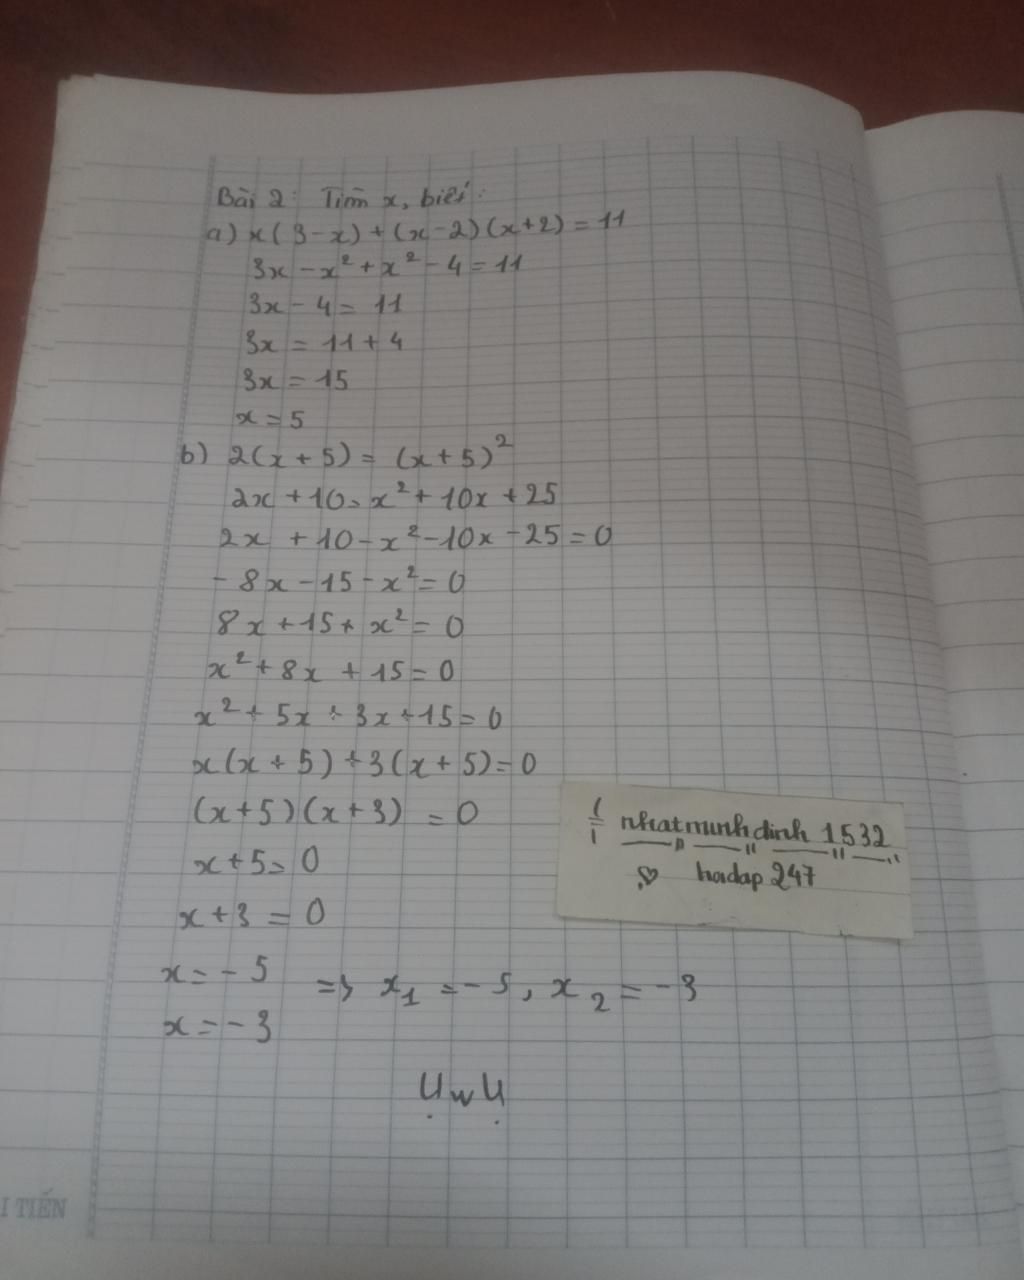 Bài 2: Tìm x, biết:
a) x(3-x)+(x-2)(x+2)=11
3x-x²+x²-4=11
3x-4=11
3x=11+4
3x=15
x=5
b) 2(x+5)=(x+5)²
2x+10=x²+10x+25
2x+10-x²-10x-25=0
-8x-15-x²=0
8x+15+x²=0
x²+8x+15=0
x²+5x+3x+15=0
x(x+5)+3(x+5)=0
(x+5)(x+3)=0
x+5=0
x+3=0
x=-5
x=-3
=> x₁=-5, x₂=-3
nhatminhdinh1532
hoidap247
UwU
I TIẾN